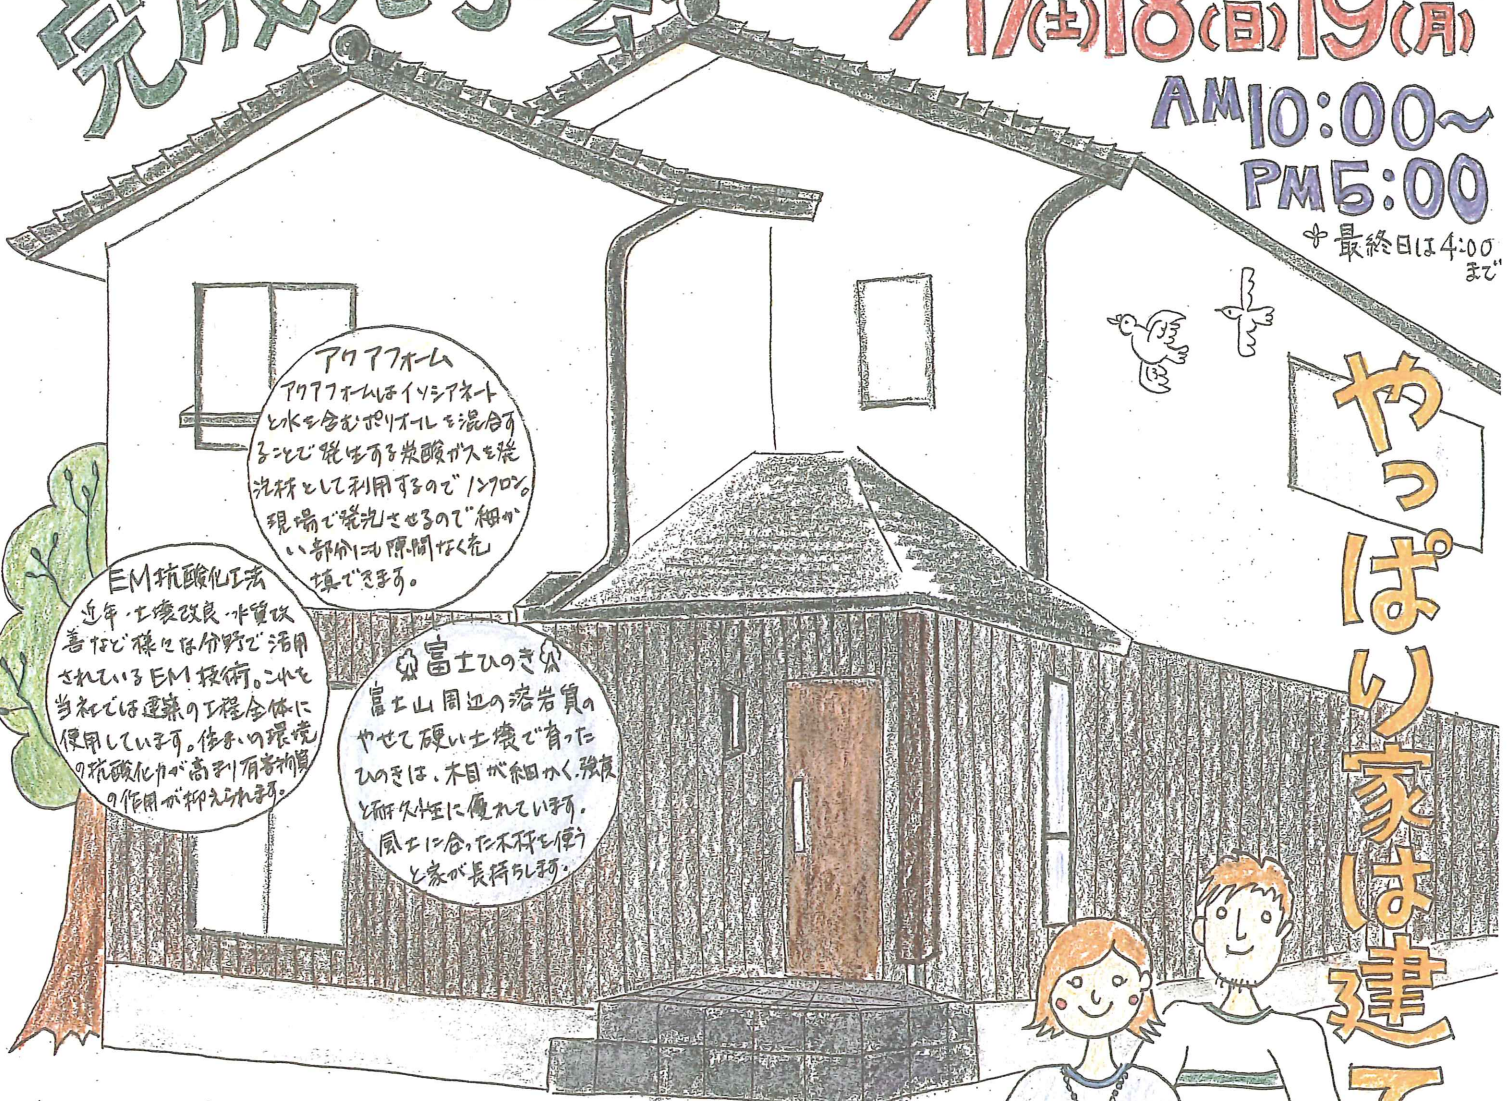 完成見学会
17(土)18(日)19(月)
AM10:00～
PM5:00
最終日は4:00
まで
アクアフォーム
アクアフォームはイソシアネート
と水を含むポリオールを混合す
ることで発生する炭酸ガスを発
泡材として利用するのでノンフロン。
現場で発泡させるので細か
い部分にも隙間なく充
填できます。
EM抗酸化工法
近年、土壌改良・水質改
善など様々な分野で活用
されているEM技術。これを
当社では建築の工程全体に
使用しています。住まいの環境
の抗酸化力が高まり有害物質
の作用が抑えられます。
富士ひのき
富士山周辺の溶岩質の
やせて硬い土壌で育った
ひのきは、木目が細かく、強度
と耐久性に優れています。
風土に合った木材を使う
と家が長持ちします。
やっぱり家は建て